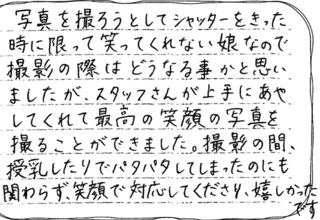 写真を撮ろうとしてシャッターをきった
時に限って笑ってくれない娘なので
撮影の際はどうなる事かと思い
ましたが、スタッフさんが上手にあや
してくれて最高の笑顔の写真を
撮ることができました。撮影の間、
授乳したりでバタバタしてしまったのにも
関わらず、笑顔で対応してくださり、嬉しかった
です